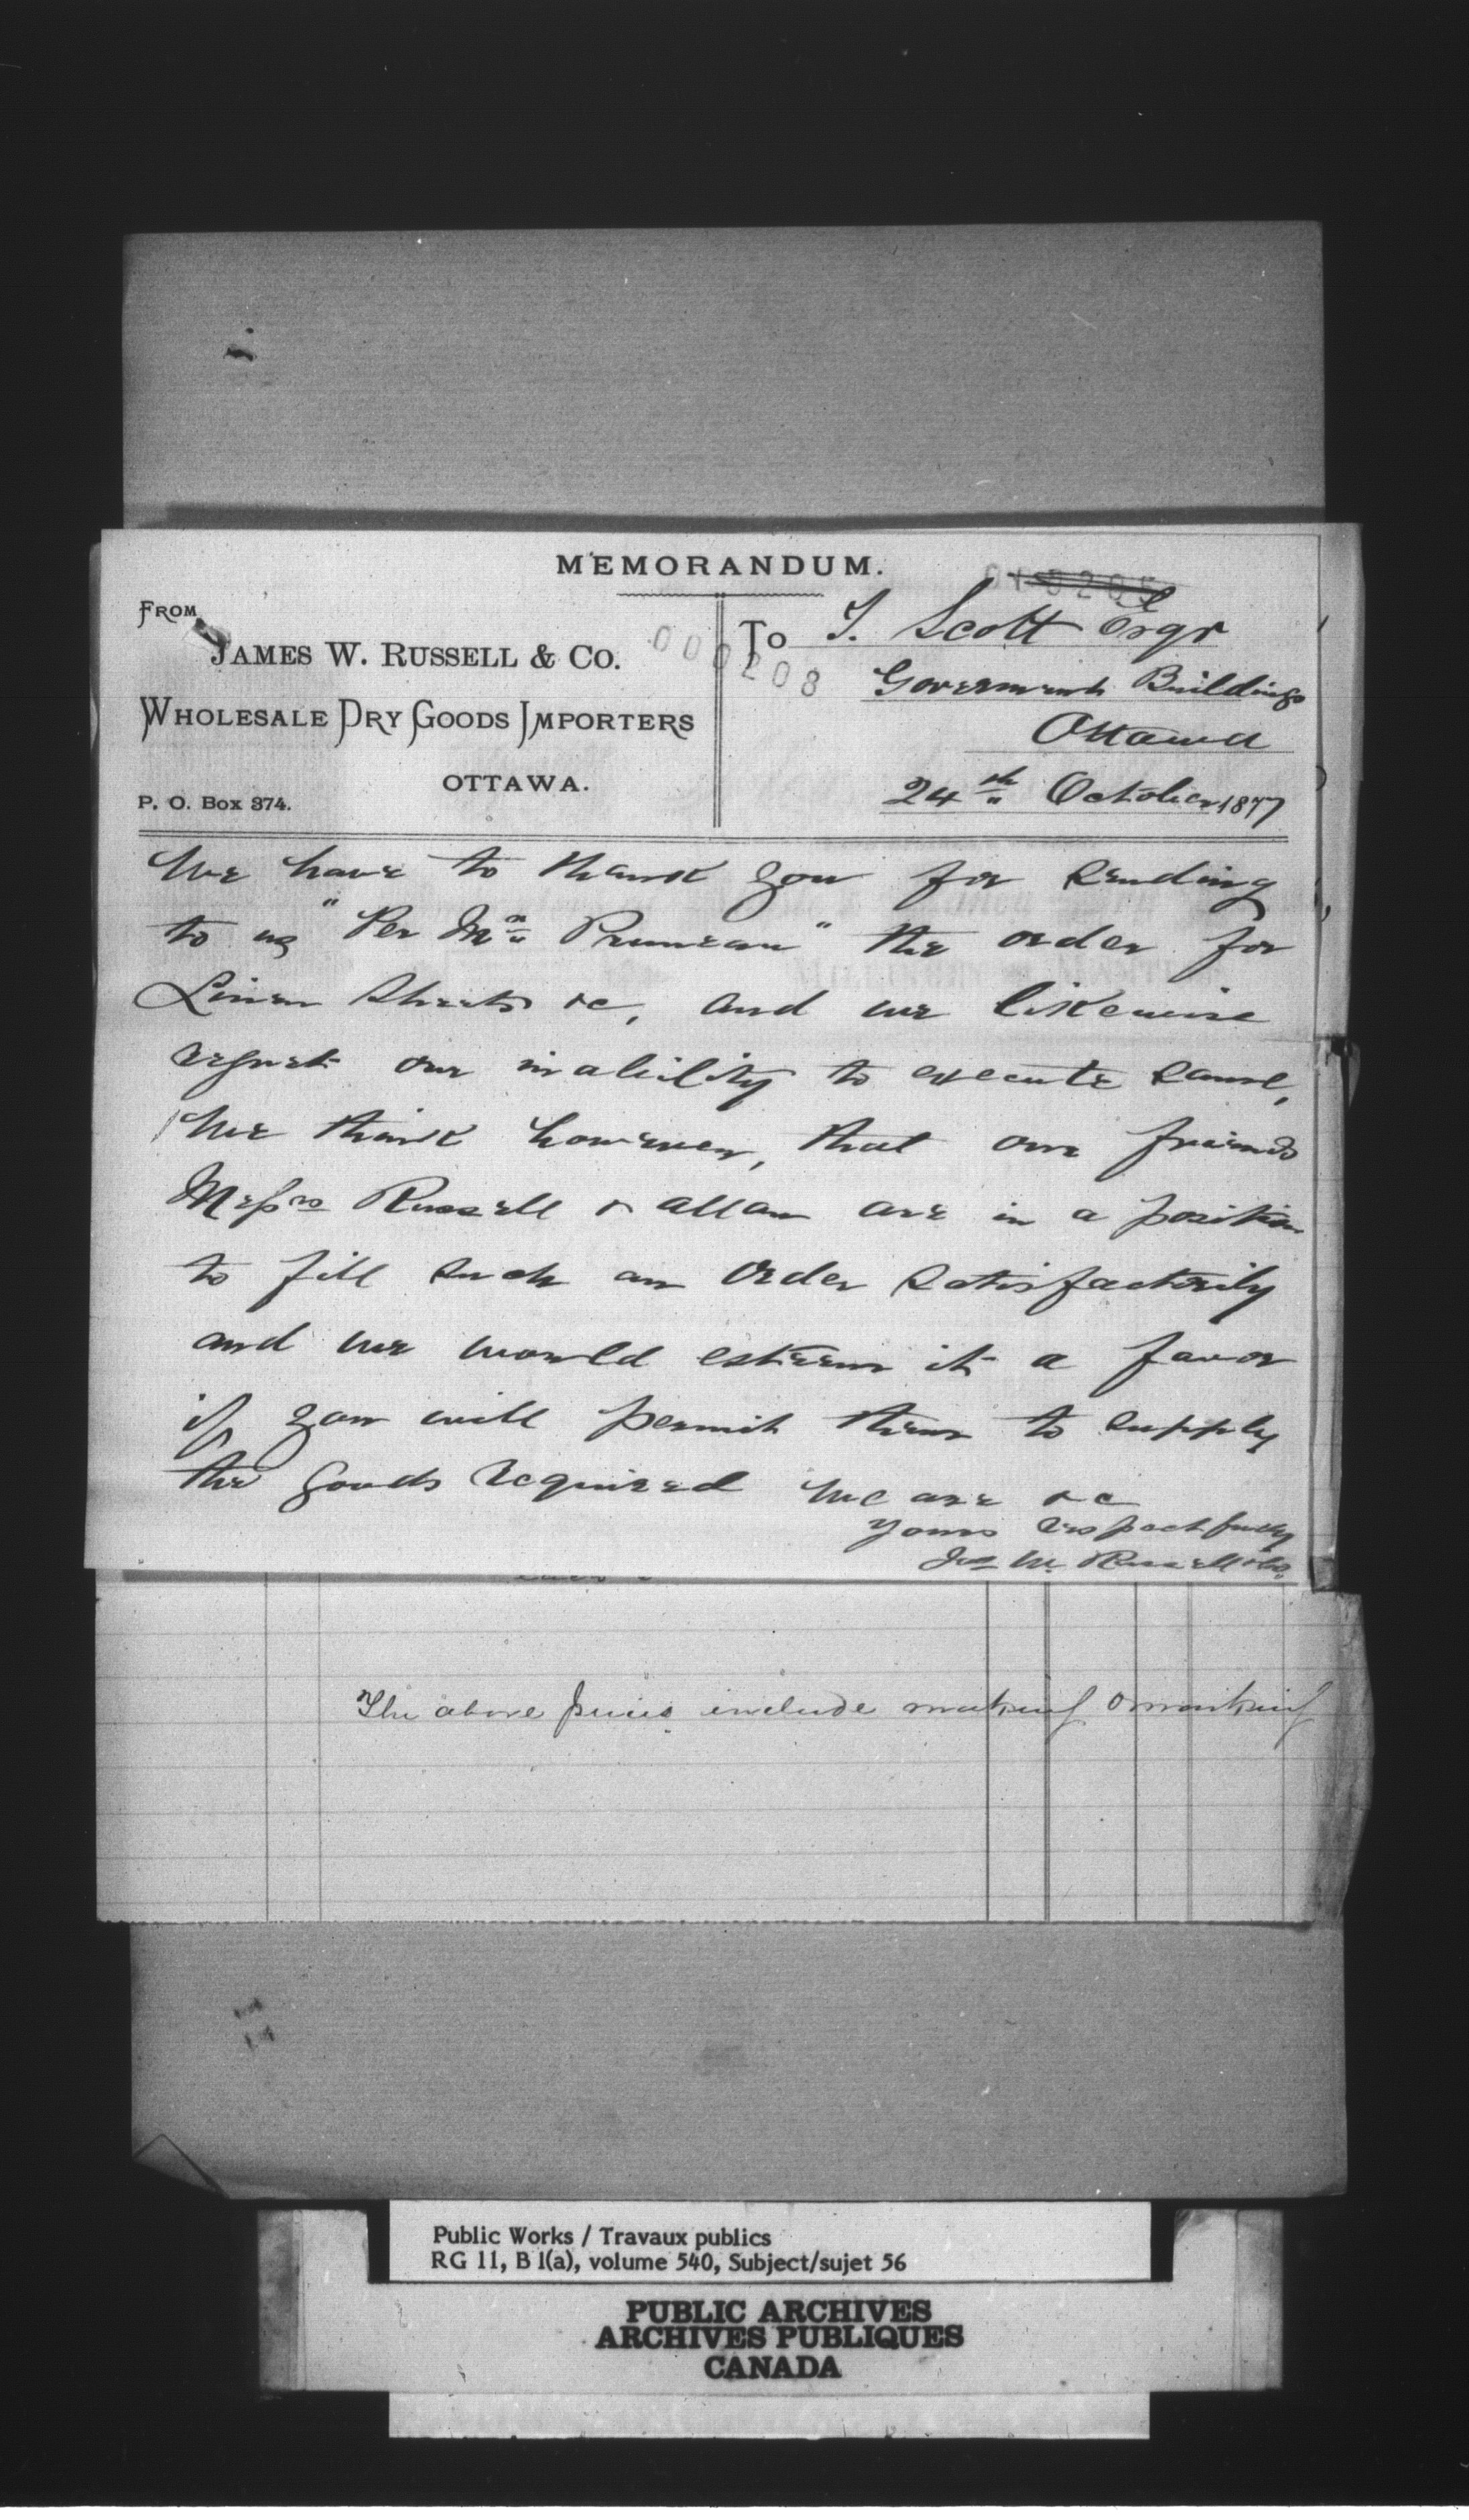 MEMORANDUM.
FROM
JAMES W. RUSSELL & CO.
WHOLESALE DRY GOODS IMPORTERS
OTTAWA.
P. O. Box 374.
000208
To T. Scott Esqr
Government Buildings
Ottawa
24th October 1877
We have to thank you for sending
to us "Per Mr Pruneau" the order for
Linen Sheets &c, and we likewise
regret our inability to execute same,
We think however, that our friends
Messrs Russell & Allan are in a position
to fill such an order satisfactorily
and we would esteem it a favor
if you will permit them to supply
the goods required We are &c
Yours respectfully
Jas W. Russell & Co.
The above prices include making & marking
Public Works / Travaux publics
RG 11, B 1(a), volume 540, Subject/sujet 56
PUBLIC ARCHIVES
ARCHIVES PUBLIQUES
CANADA